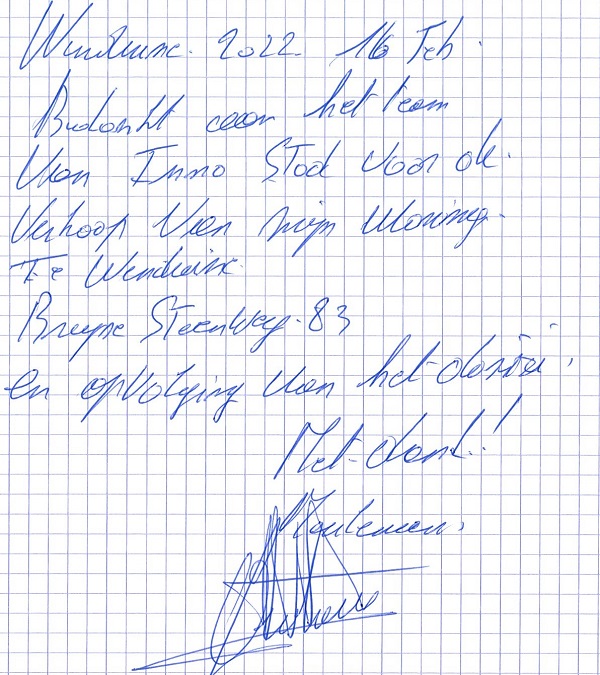 Wenduine. 2022 16 Feb.
Bedankt aan het team
Van Immo Stad voor de.
Verkoop Van mijn Woning.
Te Wenduine.
Brugse Steenweg. 83
en opvolging van het dossier.
Met dank!